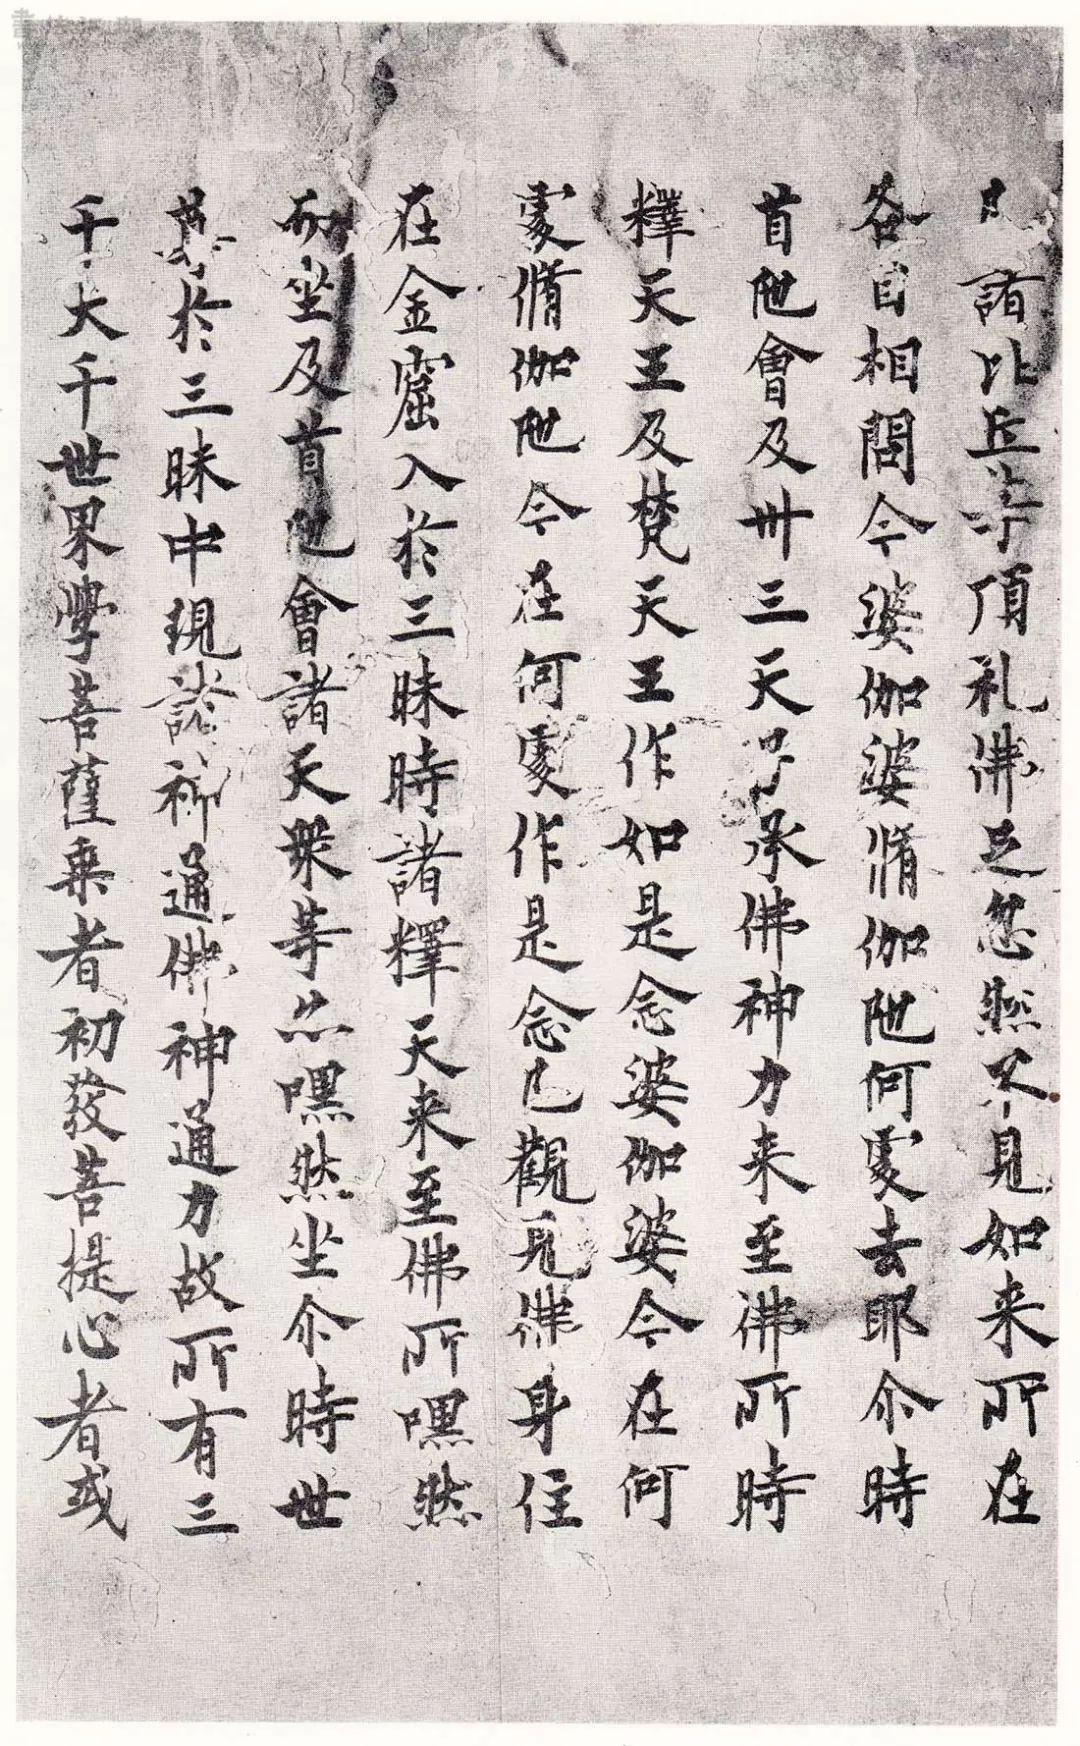 諸比丘等頂礼佛足忽然不見如来所在
各自相問今婆伽婆脩伽陁何處去耶尒時
首陁會及卅三天子承佛神力来至佛所時
釋天王及梵天王作如是念婆伽婆今在何
處脩伽陁今在何處作是念已觀見佛身住
在金窟入於三昧時諸釋天来至佛所嘿然
而坐及首陁會諸天衆等亦嘿然坐尒時世
尊於三昧中現諸神通佛神通力故所有三
千大千世界學菩薩乗者初發菩提心者或